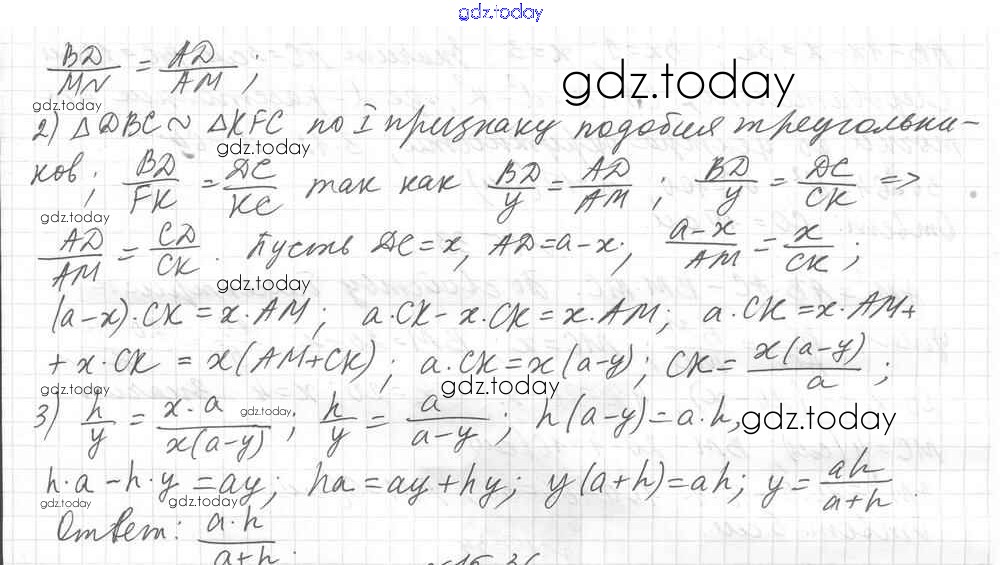 gdz.today
BD/MN = AD/AM ;
gdz.today
gdz.today
2) △DBC ~ △KFC по I признаку подобия треугольни-
gdz.today
ков ; BD/FK = DC/KC так как BD/y = AD/AM ; BD/y = DC/CK =>
gdz.today
AD/AM = CD/CK . Пусть DC = x, AD = a-x ; (a-x)/AM = x/CK ;
gdz.today
(a-x)·CK = x·AM ; a·CK - x·CK = x·AM ; a·CK = x·AM +
+ x·CK = x(AM+CK) ; a·CK = x(a-y) ; CK = x(a-y)/a ;
gdz.today
gdz.today
3) h/y = x·a/x(a-y) ; h/y = a/(a-y) ; h(a-y) = a·h,
gdz.today
gdz.today
h·a - h·y = ay ; ha = ay + hy ; y(a+h) = ah ; y = ah/(a+h) .
gdz.today
gdz.today
Ответ: a·h/(a+h) .